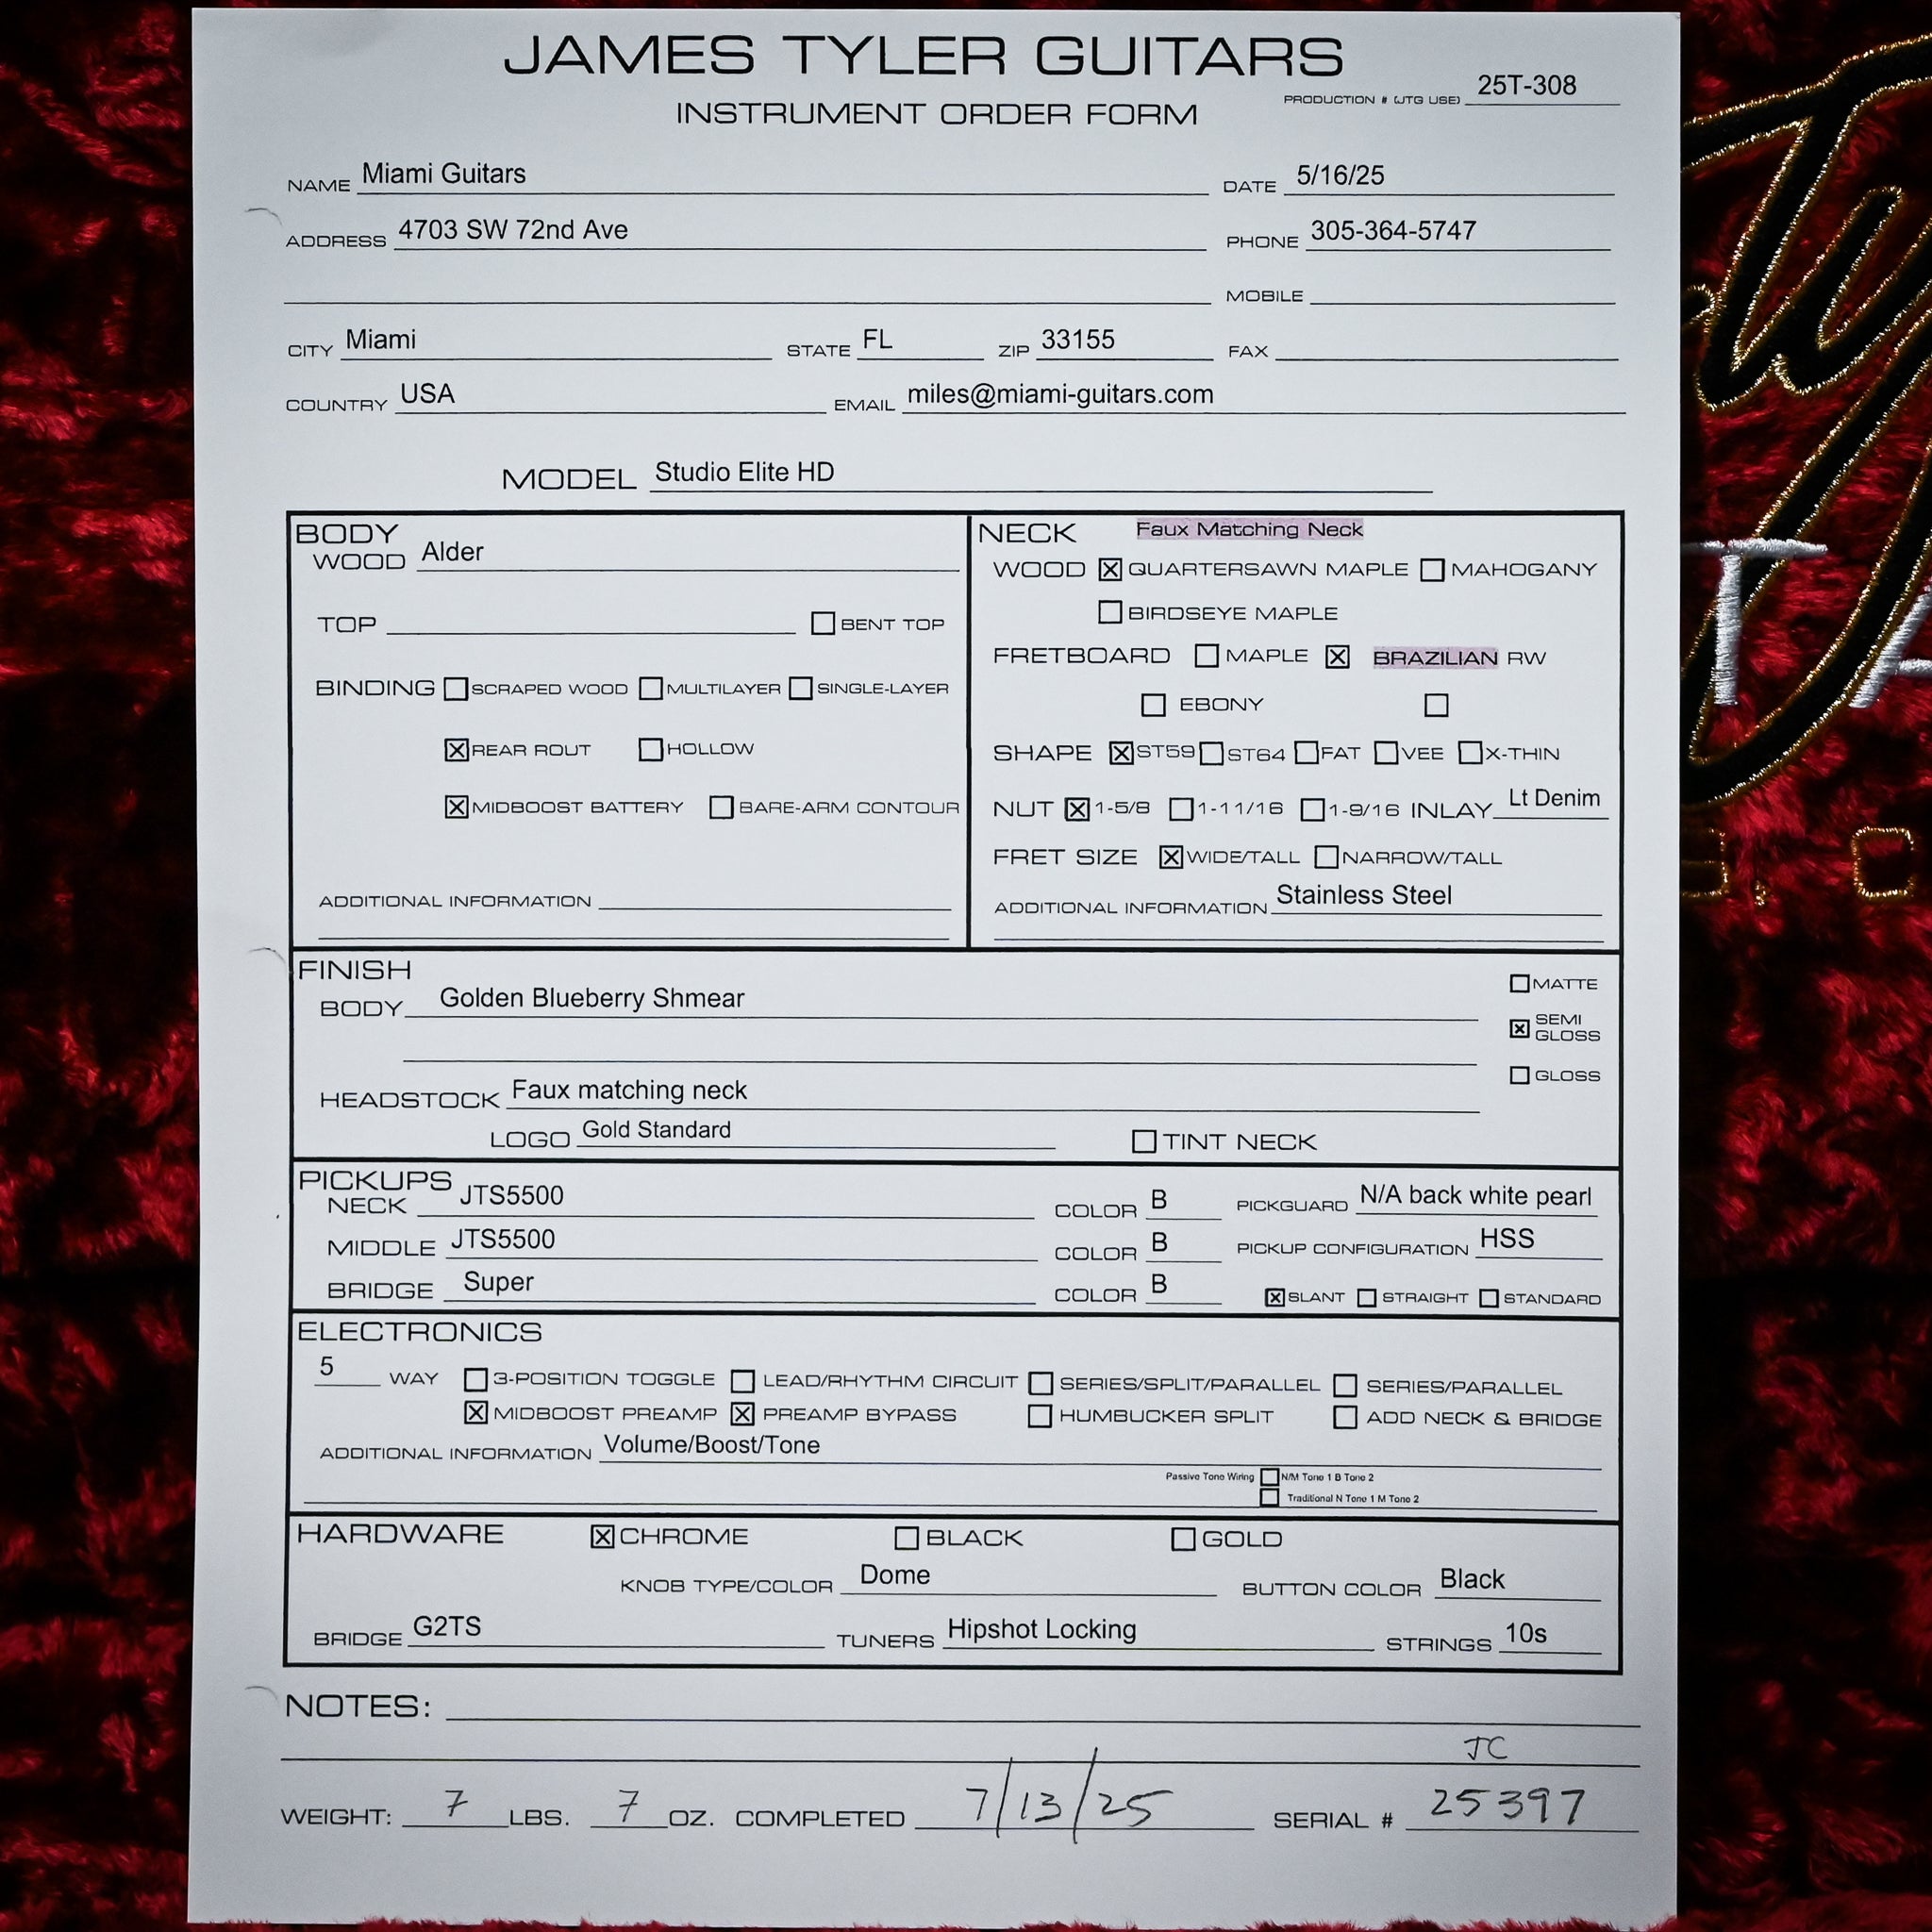 JAMES TYLER GUITARS
INSTRUMENT ORDER FORM
PRODUCTION # (JTG USE) 25T-308
NAME Miami Guitars DATE 5/16/25
ADDRESS 4703 SW 72nd Ave PHONE 305-364-5747
MOBILE
CITY Miami STATE FL ZIP 33155 FAX
COUNTRY USA EMAIL miles@miami-guitars.com
MODEL Studio Elite HD
BODY
WOOD Alder
TOP BENT TOP
BINDING SCRAPED WOOD MULTILAYER SINGLE-LAYER
REAR ROUT HOLLOW
MIDBOOST BATTERY BARE-ARM CONTOUR
ADDITIONAL INFORMATION
NECK Faux Matching Neck
WOOD QUARTERSAWN MAPLE MAHOGANY
BIRDSEYE MAPLE
FRETBOARD MAPLE BRAZILIAN RW
EBONY
SHAPE ST59 ST64 FAT VEE X-THIN
NUT 1-5/8 1-11/16 1-9/16 INLAY Lt Denim
FRET SIZE WIDE/TALL NARROW/TALL
ADDITIONAL INFORMATION Stainless Steel
FINISH
BODY Golden Blueberry Shmear
MATTE
SEMI
GLOSS
GLOSS
HEADSTOCK Faux matching neck
LOGO Gold Standard TINT NECK
PICKUPS
NECK JTS5500 COLOR B PICKGUARD N/A back white pearl
MIDDLE JTS5500 COLOR B PICKUP CONFIGURATION HSS
BRIDGE Super COLOR B SLANT STRAIGHT STANDARD
ELECTRONICS
5 WAY 3-POSITION TOGGLE LEAD/RHYTHM CIRCUIT SERIES/SPLIT/PARALLEL SERIES/PARALLEL
MIDBOOST PREAMP PREAMP BYPASS HUMBUCKER SPLIT ADD NECK & BRIDGE
ADDITIONAL INFORMATION Volume/Boost/Tone
Passive Tone Wiring N/M Tone 1 B Tone 2
Traditional N Tone 1 M Tone 2
HARDWARE CHROME BLACK GOLD
KNOB TYPE/COLOR Dome BUTTON COLOR Black
BRIDGE G2TS TUNERS Hipshot Locking STRINGS 10s
NOTES:
JC
WEIGHT: 7 LBS. 7 OZ. COMPLETED 7/13/25 SERIAL # 25397